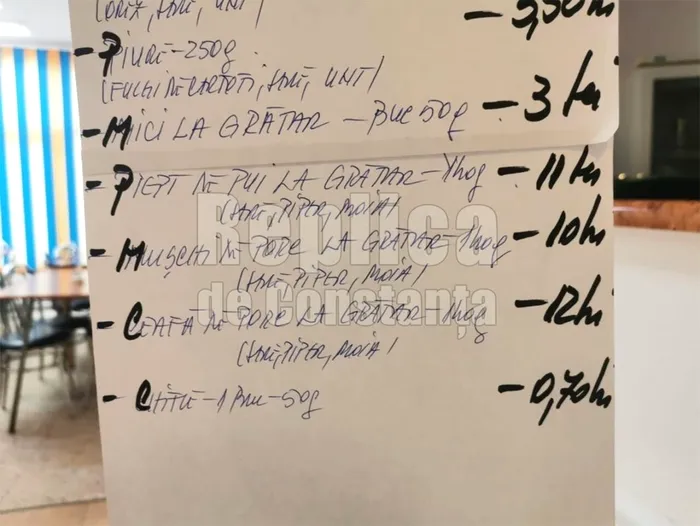 (OREZ, SARE, UNT) - 5,50 lei
- PIURE - 250g
(FULGI DE CARTOFI, SARE, UNT)
- MICI LA GRĂTAR - BUC 50g - 3 lei
- PIEPT DE PUI LA GRĂTAR - 1hog - 11 lei
(SARE, PIPER, BOIA)
- MUȘCHI DE PORC LA GRĂTAR - 1hog - 10 lei
(SARE, PIPER, BOIA)
- CEAFĂ DE PORC LA GRĂTAR - 1hog - 12 lei
(SARE, PIPER, BOIA)
- CHIFLE - 1 BUC - 50g - 0,70 lei
Replica
de Constanța